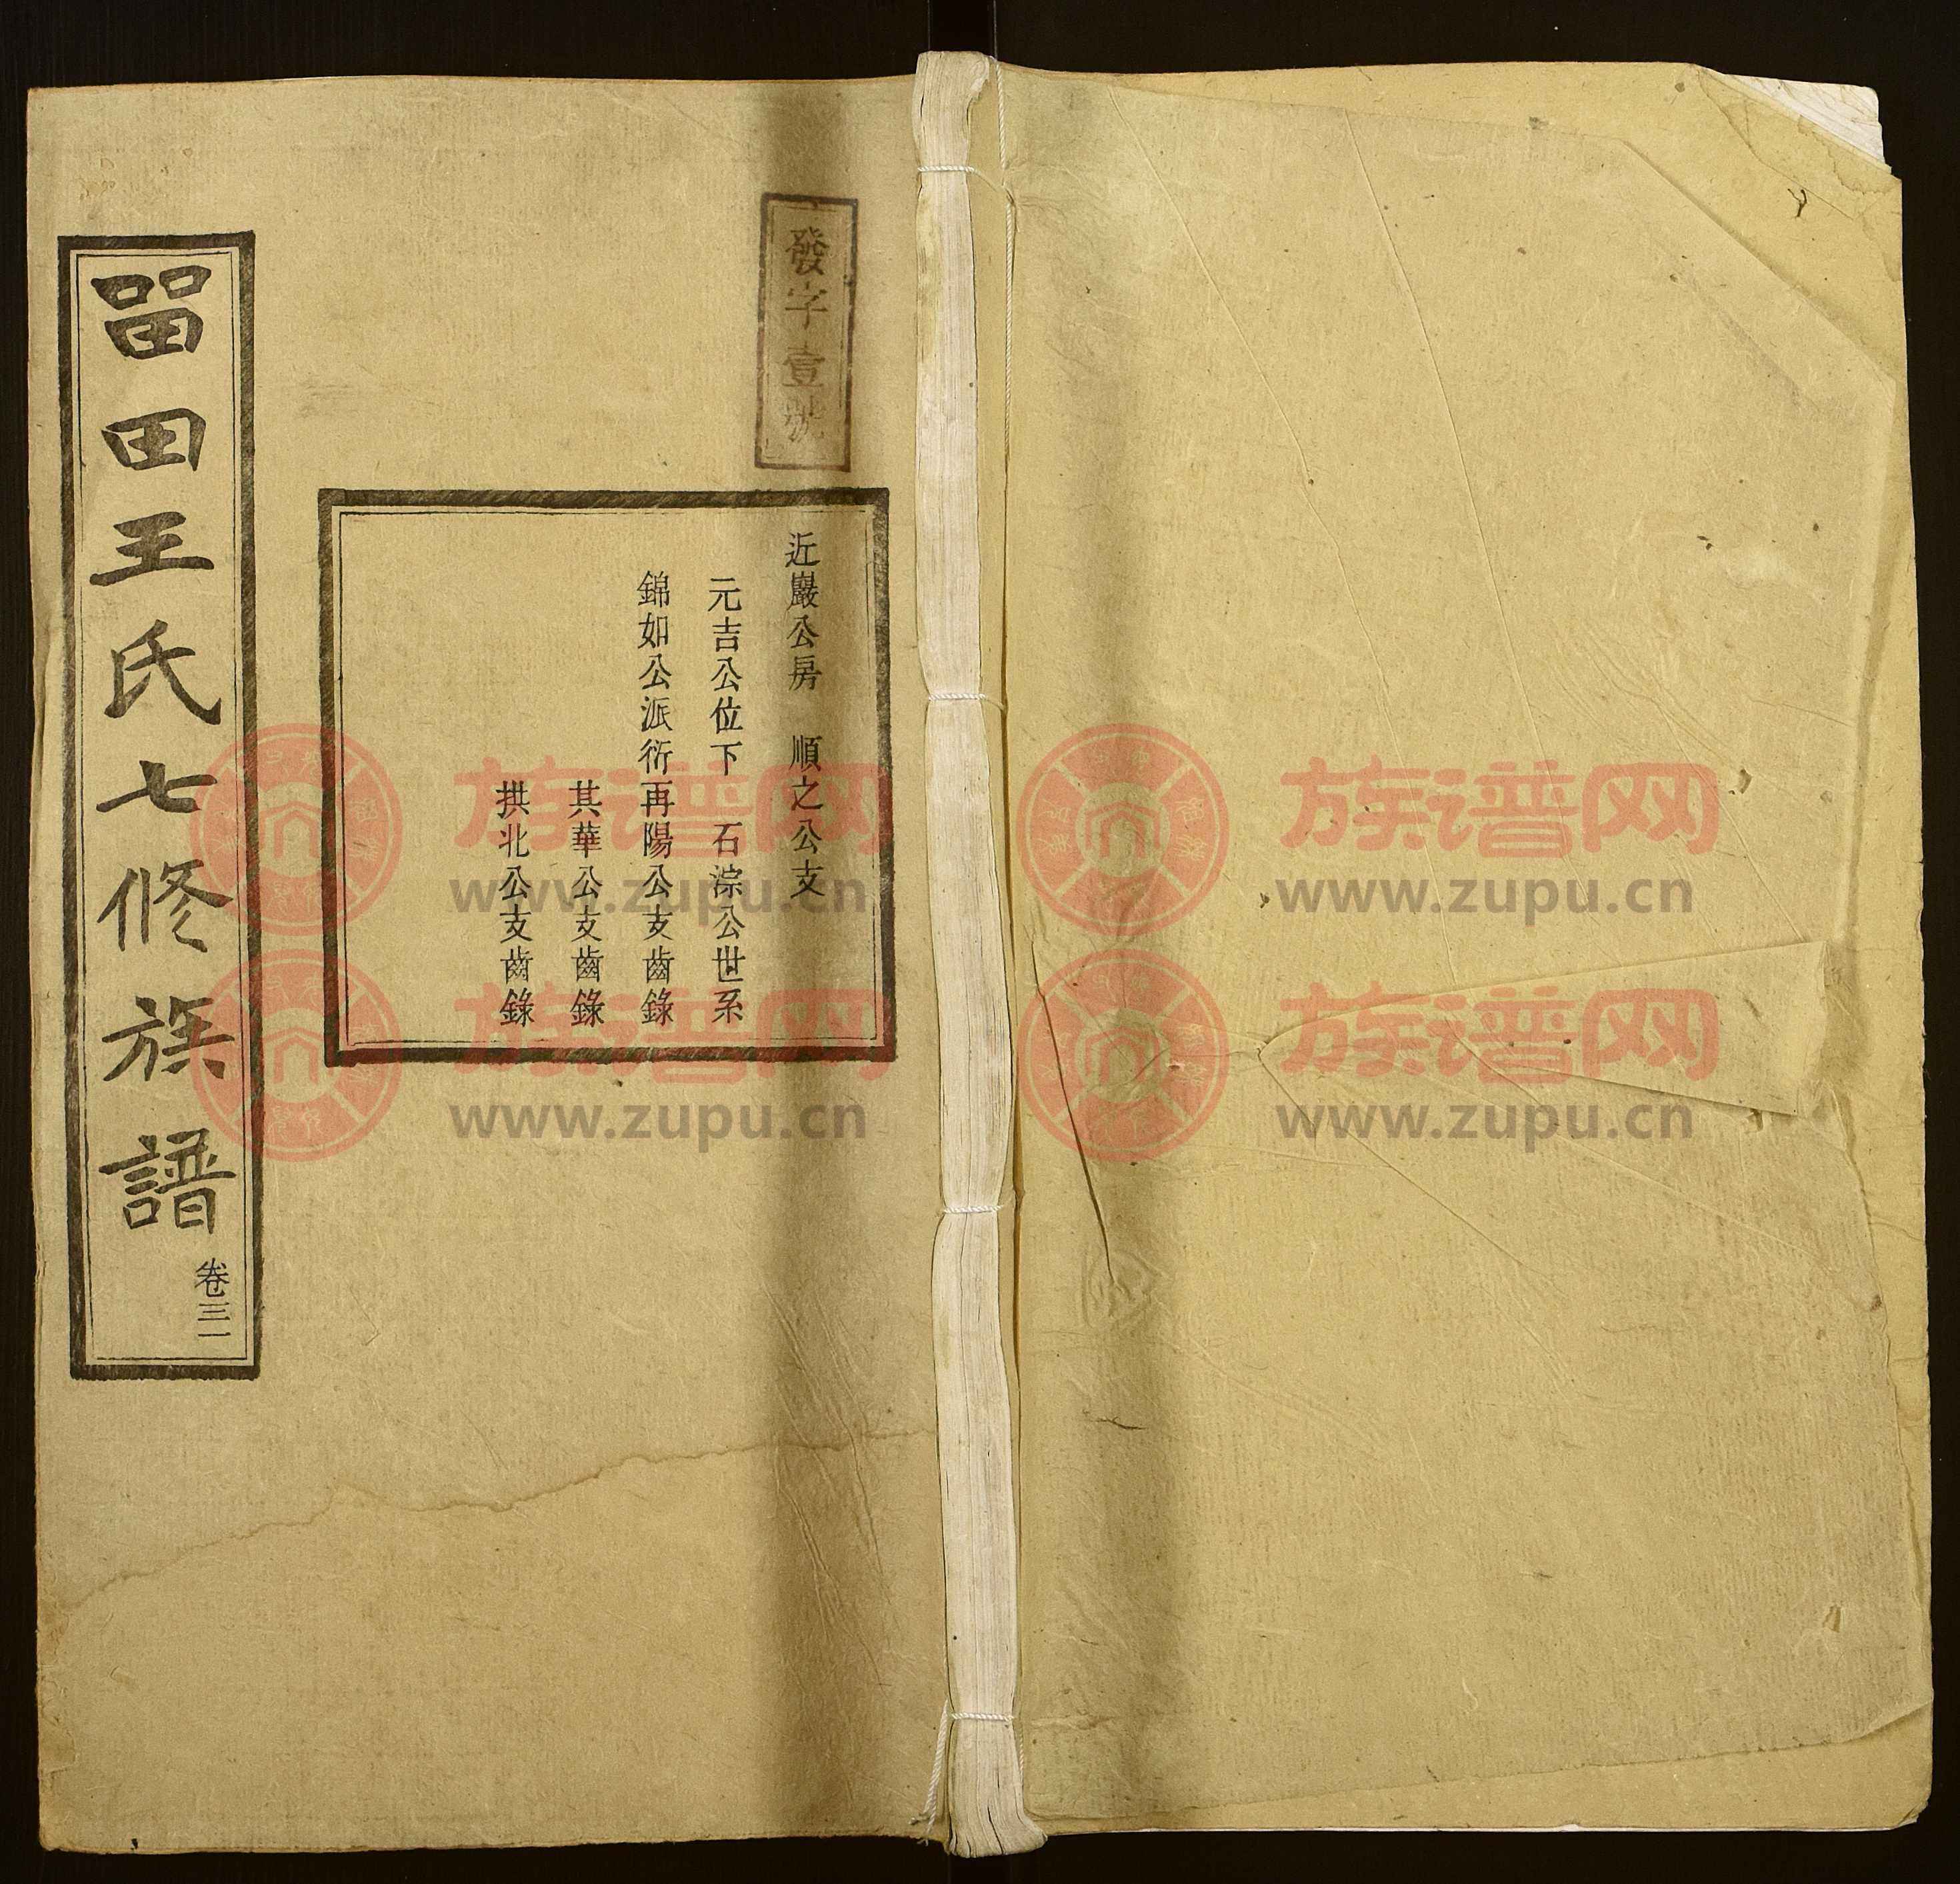 發字壹號
近巖公房　順之公支
元吉公位下　石淙公世系
錦如公派衍再陽公支齒錄
其華公支齒錄
拱北公支齒錄
畱田王氏七修族譜
卷三一
族谱网
www.zupu.cn
族谱网
www.zupu.cn
族谱网
www.zupu.cn
族谱网
www.zupu.cn